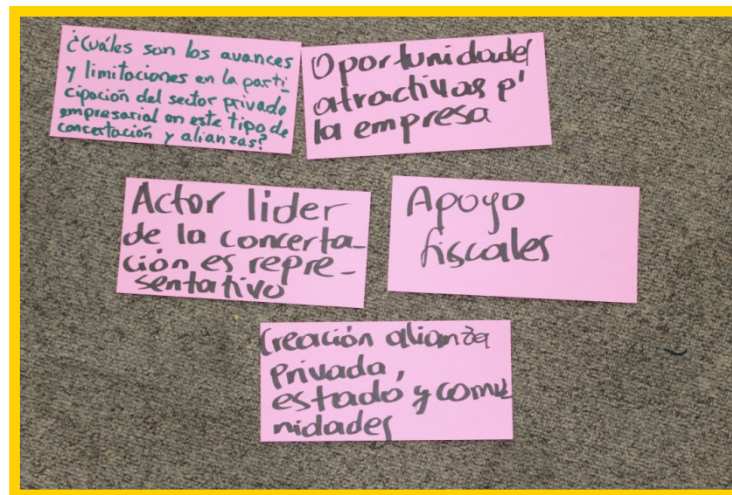 ¿Cuáles son los avances
y limitaciones en la parti
cipación del sector privado
empresarial en este tipo de
concertación y alianzas?
Oportunidades
atractivas p'
la empresa
Actor lider
de la concerta-
ción es repre-
sentativo
Apoyo
fiscales
Creación alianza
Privada,
estado y comu
nidades